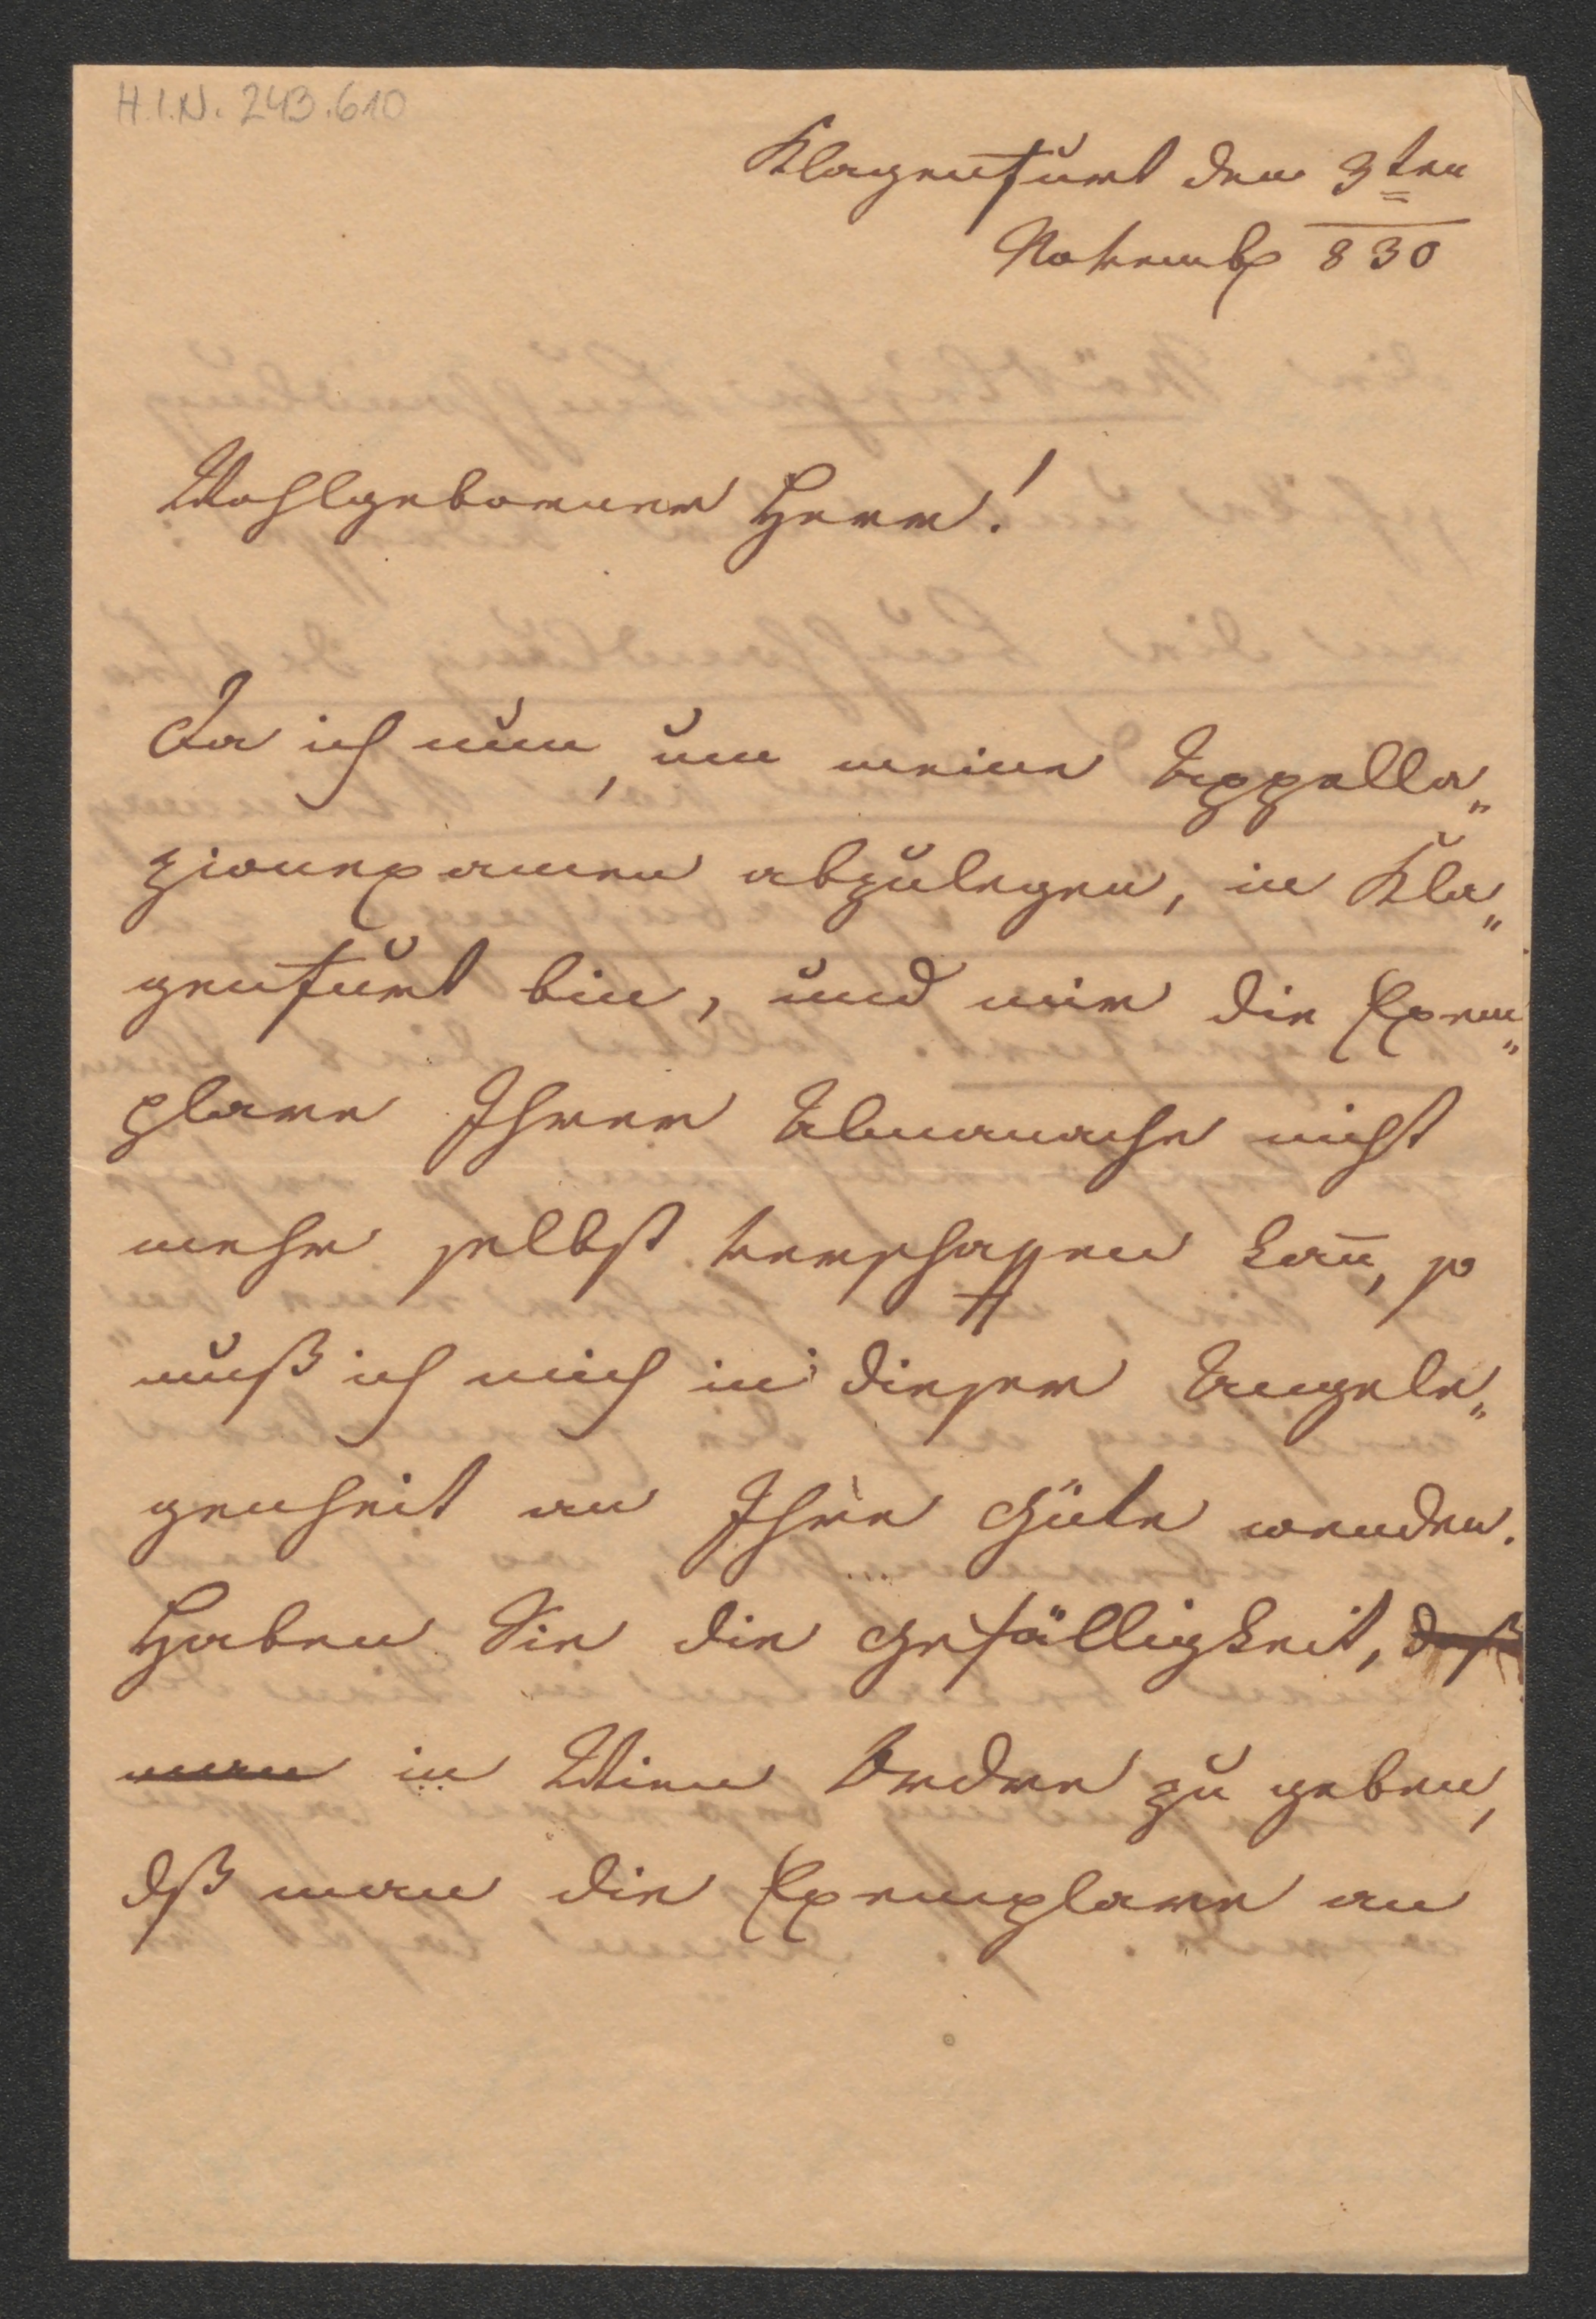 H.I.N. 243.610
Klagenfurt den 3ten
Novemb 830
Wohlgeborner Herr!
Da ich nun, um meine Appella„
zionexamen abzulegen, in Kla„
genfurt bin, und mir die Exem„
plare Ihrer Almanache nicht
mehr selbst verschaffen kan̄, so
muß ich mich in dieser Angele„
genheit an Ihre Güte wenden.
Haben Sie die Gefälligkeit, daß
man in Wien Ordre zu geben,
dß man die Exemplare an